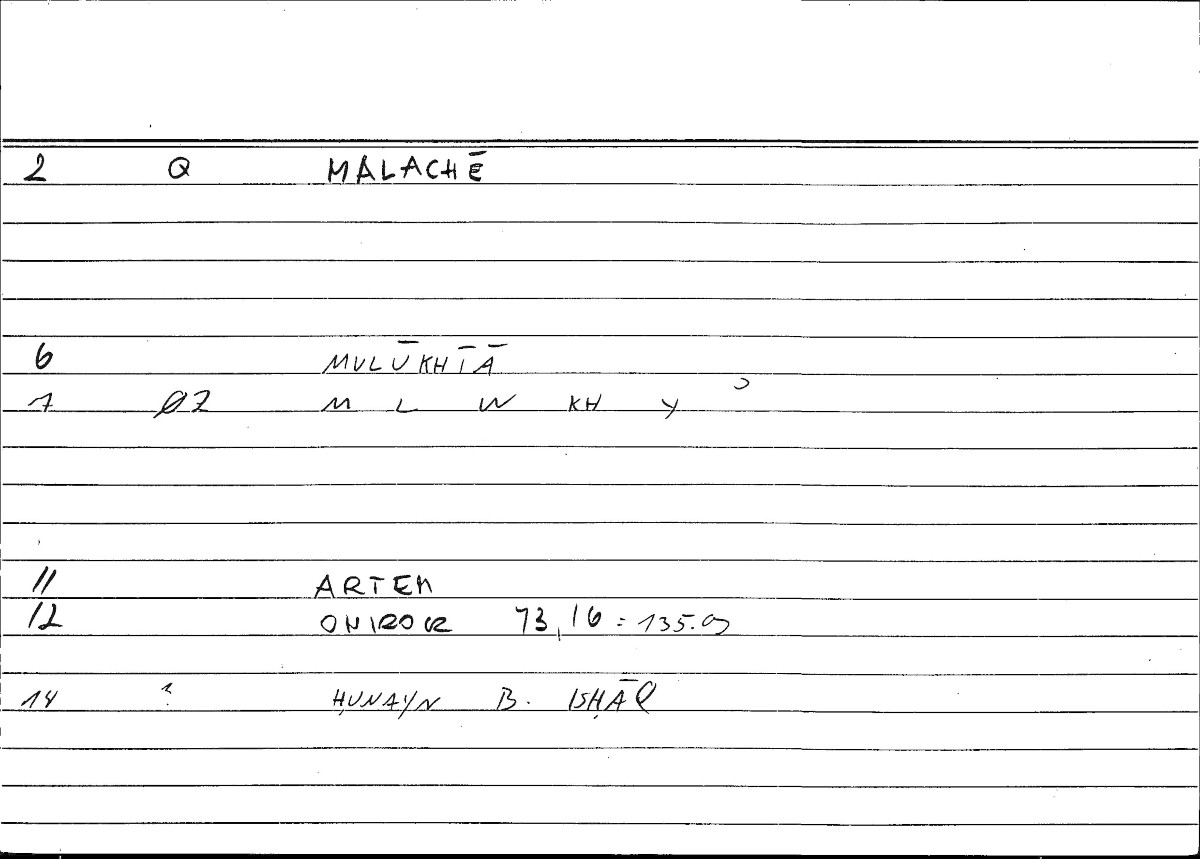 2 Q MALACHĒ
6 MULŪKHĪĀ
7 ØZ M L W KH Y ʾ
11 ARTEM
12 ONIROCR 73,16 = 135.9
14 ? ḤUNAYN B. ISḤĀQ